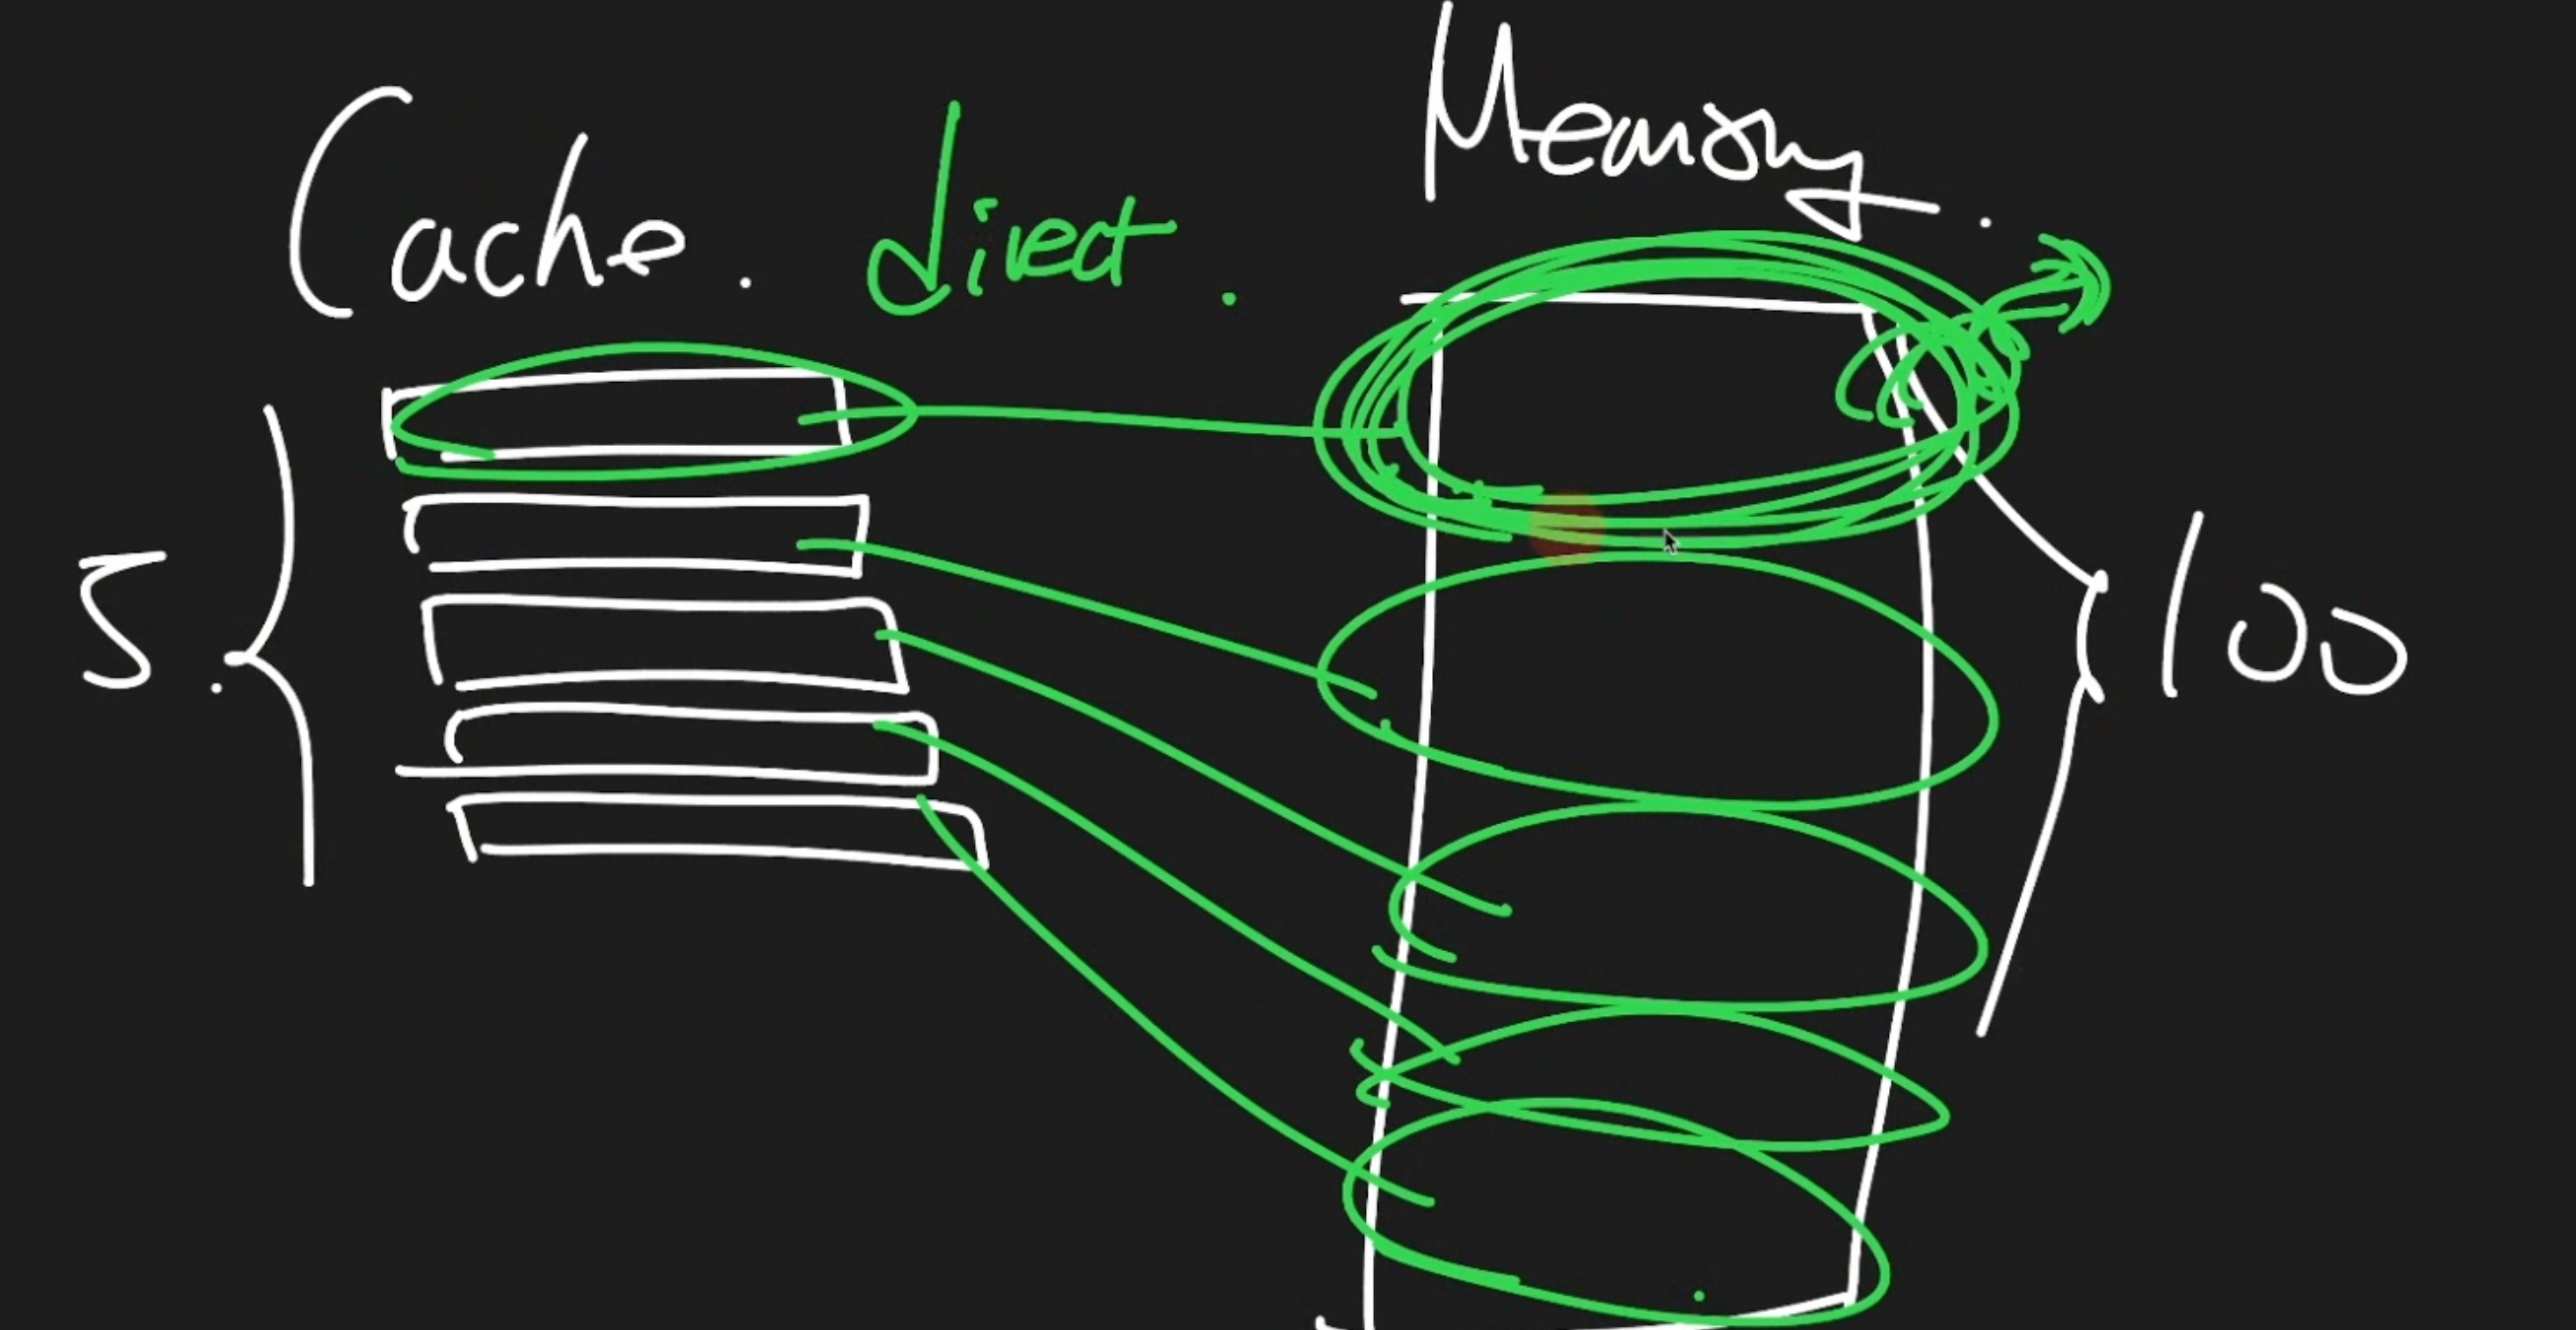 Cache. direct. Memory.
5.
100